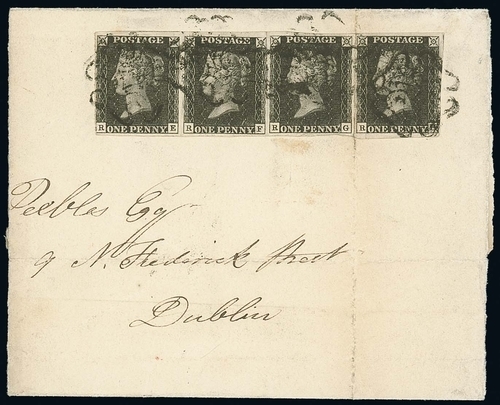 POSTAGE POSTAGE POSTAGE POSTAGE
R ONE PENNY E R ONE PENNY F R ONE PENNY G R ONE PENNY
Peebles Esqr
9 N. Frederick Street
Dublin